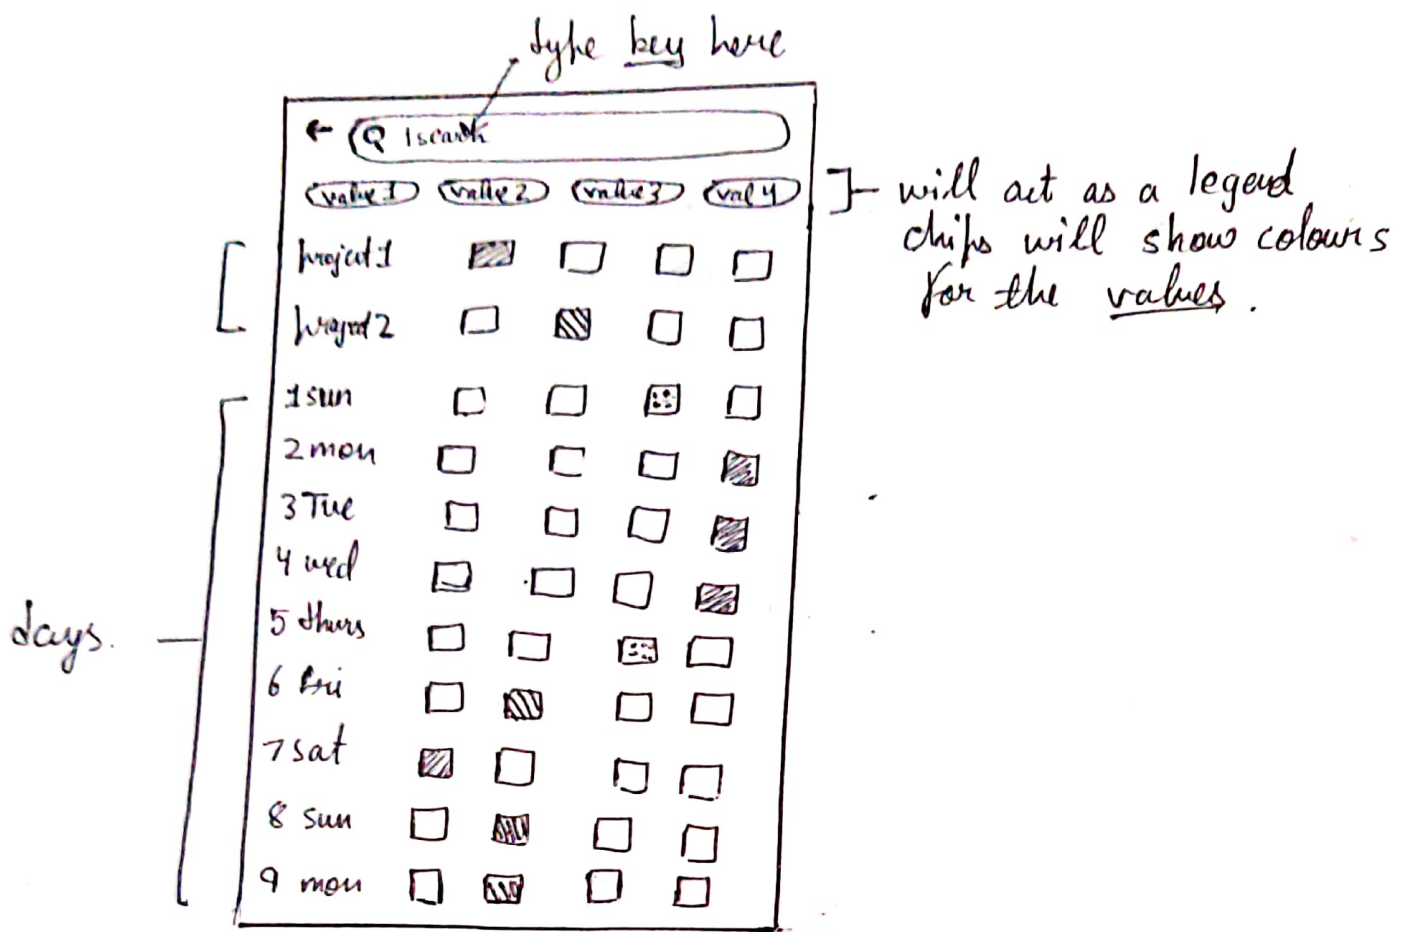 type key here
← 1search
value 1 value 2 value 3 val 4
will act as a legend
chips will show colours
for the values.
project 1
project 2
1 sun
2 mon
3 Tue
4 wed
5 thurs
days.
6 fri
7 sat
8 sun
9 mon